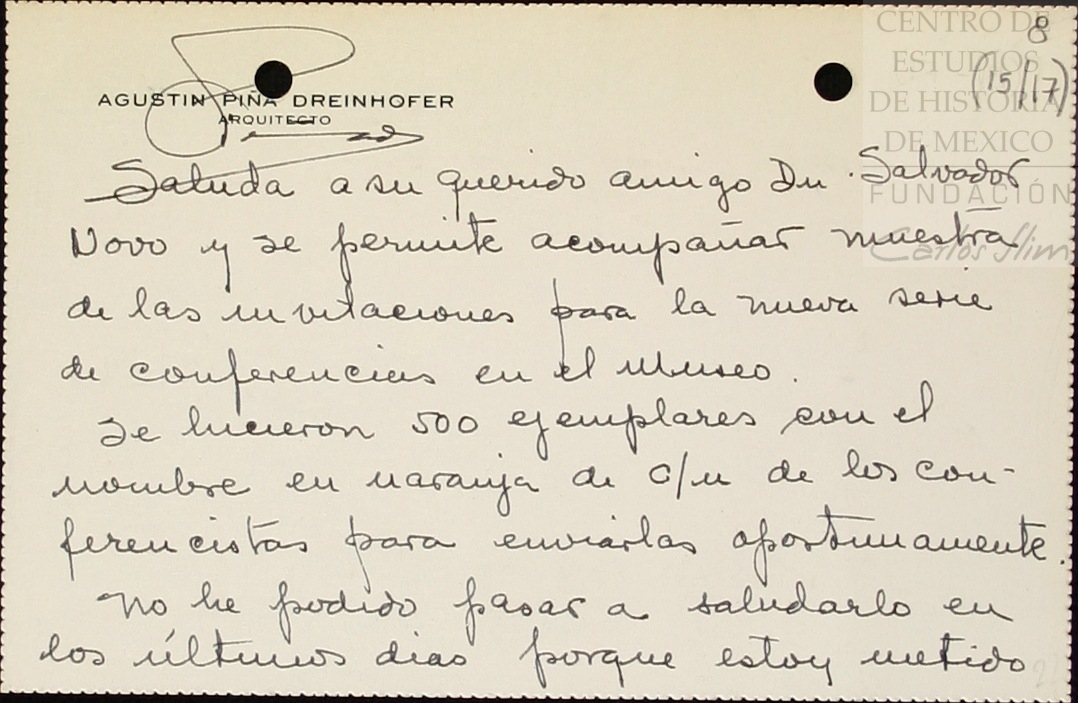 CENTRO DE
ESTUDIOS
DE HISTORIA
DE MEXICO
FUNDACIÓN
Carlos Slim
8
(15/17)
AGUSTIN PIÑA DREINHOFER
ARQUITECTO
Saluda a su querido amigo Dn. Salvador
Novo y se permite acompañar muestra
de las invitaciones para la nueva serie
de conferencias en el Museo.
Se hicieron 500 ejemplares con el
nombre en naranja de c/u de los con-
ferencistas para enviarlas oportunamente.
No he podido pasar a saludarlo en
los últimos dias porque estoy metido